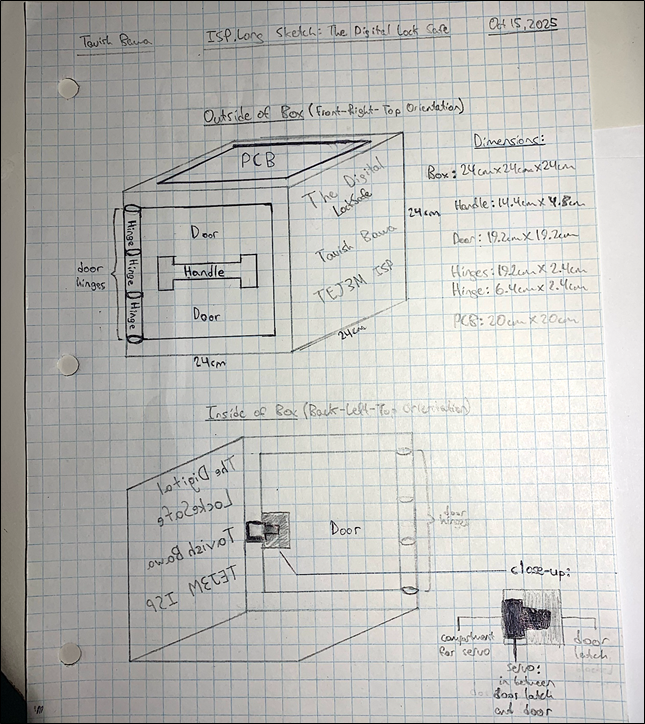 Tavish Bawa
ISP.Long Sketch: The Digital Lock Safe
Oct 15, 2025
Outside of Box (Front-Right-Top Orientation)
PCB
Door
Handle
Door
Hinge
Hinge
Hinge
door
hinges
24cm
24cm
24cm
The Digital
LockSafe
Tavish Bawa
TEJ3M ISP
Dimensions:
Box: 24cm×24cm×24cm
Handle: 14.4cm×4.8cm
Door: 19.2cm×19.2cm
Hinges: 19.2cm×2.4cm
Hinge: 6.4cm×2.4cm
PCB: 20cm×20cm
Inside of Box (Back-Left-Top Orientation)
The Digital
LockeSafe
Tavish Bawa
TEJ3M ISP
Door
door
hinges
close-up:
compartment
for servo
servo:
in between
door latch
and door
door
latch